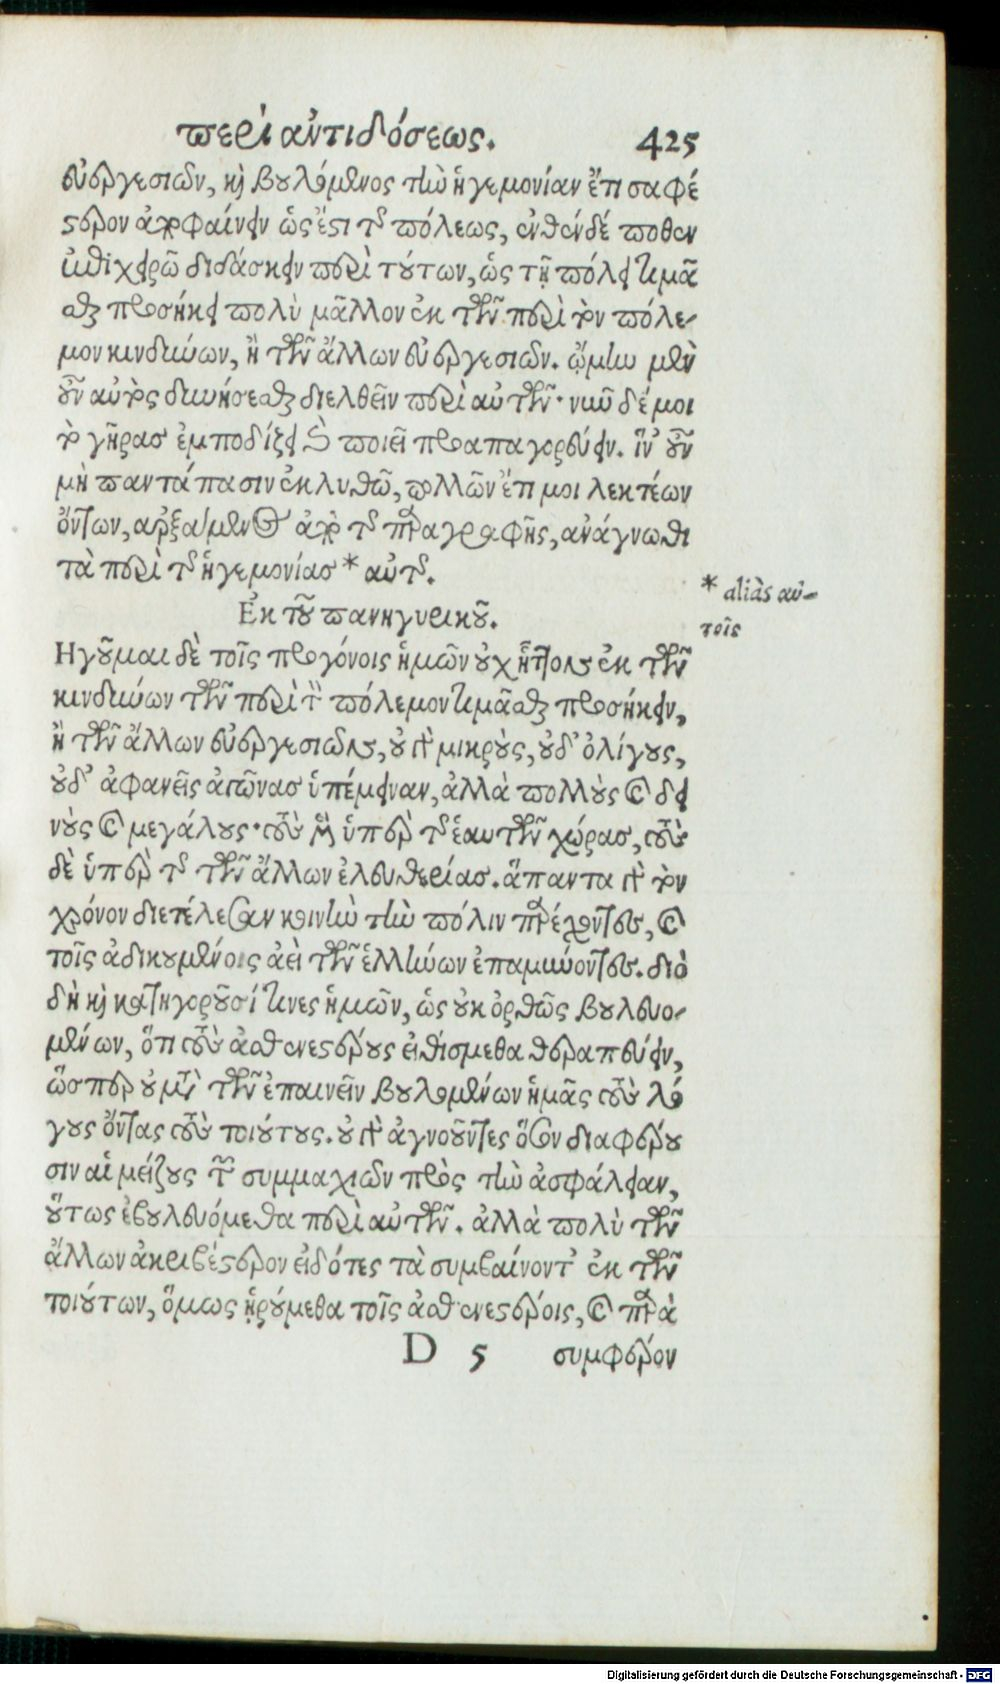 περὶ ἀντιδόσεως. 425
εὐεργεσιῶν, καὶ βουλόμενος τὴν ἡγεμονίαν ἔτι σαφέ
στερον ἀποφαίνειν ὡς ἔστι τῆς πόλεως, ἐνθένδέ ποθεν
ἐπιχειρῶ διδάσκειν περὶ τούτων, ὡς τῇ πόλει τιμᾶ
σθαι προσήκει πολὺ μᾶλλον ἐκ τῶν περὶ τὸν πόλε-
μον κινδύνων, ἢ τῶν ἄλλων εὐεργεσιῶν. ᾤμην μὲν
οὖν αὐτὸς δυνήσεσθαι διελθεῖν περὶ αὐτῶν· νυῦ δέ μοι
τὸ γῆρας ἐμποδίζει καὶ ποιεῖ προαπαγορεύειν. ἵν' οὖν
μὴ παντάπασιν ἐκλυθῶ, πολλῶν ἔτι μοι λεκτέων
ὄντων, ἀρξάμενος ἀπὸ τῆς παραγραφῆς, ἀνάγνωθι
τὰ περὶ τῆς ἡγεμονίας * αὐτῆς.
* aliàs αὐ-
τοῖς
Ἐκ τοῦ πανηγυρικοῦ.
Ηγοῦμαι δὲ τοῖς προγόνοις ἡμῶν οὐχ ἧττον ἐκ τῶν
κινδύνων τῶν περὶ τὸν πόλεμον τιμᾶσθαι προσήκειν,
ἢ τῶν ἄλλων εὐεργεσιῶν, οὐ γὰρ μικροὺς, οὐδ' ὀλίγους,
οὐδ' ἀφανεῖς ἀγῶνας ὑπέμειναν, ἀλλὰ πολλοὺς καὶ δει
νοὺς καὶ μεγάλους· τοὺς μὲν ὑπὲρ τῆς ἑαυτῶν χώρας, τοὺς
δὲ ὑπὲρ τῆς τῶν ἄλλων ἐλευθερίας. ἅπαντα γὰρ τὸν
χρόνον διετέλεσαν κοινὴν τὴν πόλιν παρέχοντες, καὶ
τοῖς ἀδικουμένοις ἀεὶ τῶν ἑλλήνων ἐπαμύνοντες. διὸ
δὴ καὶ κατηγοροῦσί τινες ἡμῶν, ὡς οὐκ ὀρθῶς βουλευο-
μένων, ὅτι τοὺς ἀσθενεστέρους εἰθίσμεθα θεραπεύειν,
ὥσπερ οὐ μετὰ τῶν ἐπαινεῖν βουλομένων ἡμᾶς τοὺς λό
γους ὄντας τοὺς τοιούτους. οὐ γὰρ ἀγνοοῦντες ὅσον διαφέρου
σιν αἱ μείζους τῶν συμμαχιῶν πρὸς τὴν ἀσφάλειαν,
οὕτως ἐβουλευόμεθα περὶ αὐτῶν. ἀλλὰ πολὺ τῶν
ἄλλων ἀκριβέστερον εἰδότες τὰ συμβαίνοντ' ἐκ τῶν
τοιούτων, ὅμως ᾑρούμεθα τοῖς ἀσθενεστέροις, καὶ παρὰ
D 5 συμφέρον
Digitalisierung gefördert durch die Deutsche Forschungsgemeinschaft - DFG